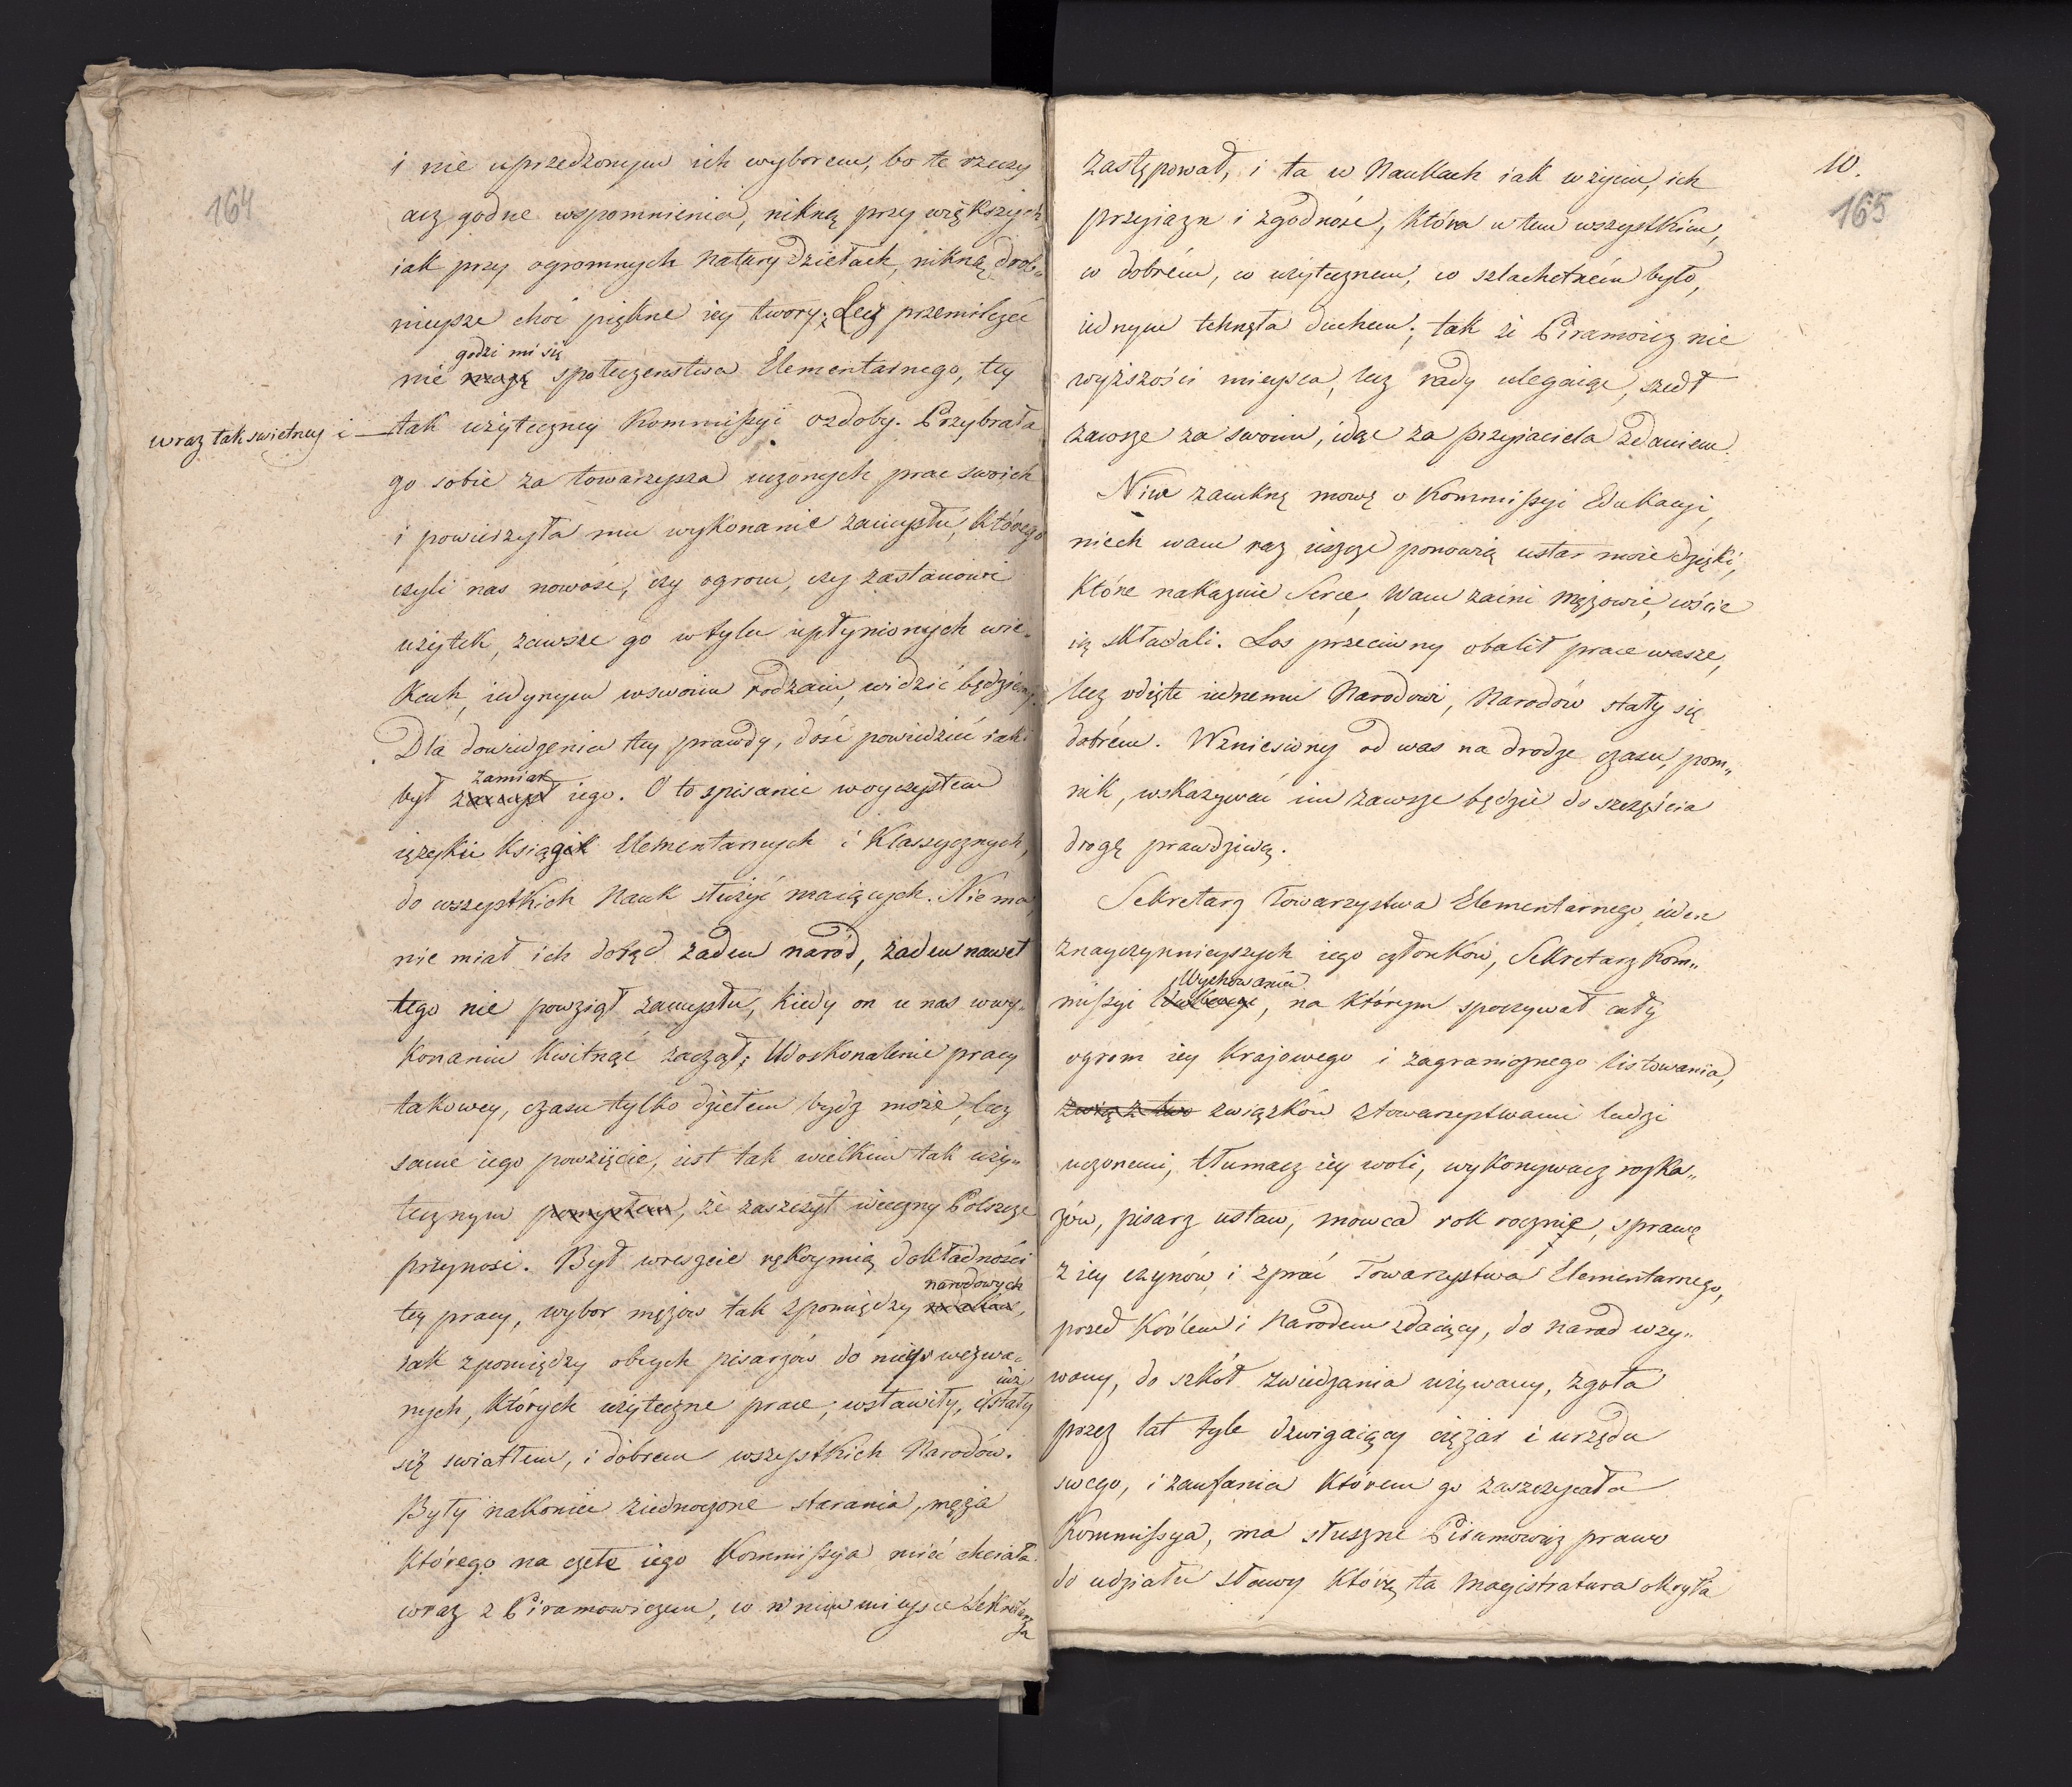 164
i nie uprzedzonym ich wyborem, bo te rzeczy
acz godne wspomnienia, nikną przy większych
iak przy ogromnych Natury Dziełach, nikną drob„
nieysze choć piękne iey twory; Lecz przemilczeć
godzi mi się
nie mogę społeczenstwa Elementarnego, tey
wraz tak swietney i — tak użyteczney Kommissyi ozdoby. Przybrała
go sobie za towarzysza uczonych prac swoich
i powierzyła mu wykonanie zamysłu, którego
czyli nas nowość, czy ogrom, czy zastanowi
użytek, zawsze go w tylu upłynionych wie„
kach, iedynym w swoim rodzaiu, widzić będziemy.
Dla dowiedzenia tey prawdy, dość powiedzić iaki
zamiar
był zamysł iego. O to spisanie w oyczystem
ięzyku Książek Elementarnych i Klassycznych,
do wszystkich Nauk służyć maiących. Nie ma,
nie miał ich dotąd żaden naród, żaden nawet
tego nie powziął zamysłu, kiedy on u nas w wy„
konaniu kwitnąć zaczął; Udoskonalenie pracy
takowey, czasu tylko dziełem bydz może, lecz
same iego powzięcie, iest tak wielkim tak uży„
tecznym pomysłem, że zaszczyt wieczny Polszcze
przynosi. Był wreszcie rękoymią dokładności
narodowych
tey pracy, wybor mężow tak zpomiędzy rodaków,
iak zpomiędzy obcych pisarzów do niego wezwa„
iuż
nych, których użyteczne prace, wsławiły, i stały
się swiatłem, i dobrem wszystkich Narodów.
Były nakoniec ziednoczone starania, męża
którego na czele iego Kommissya mieć chciała
wraz z Piramowiczem, co w nim mieysce Sekretarza
10.
165
zastępował, i ta w Naukach iak w życiu, ich
przyiazn i zgodność, która w tem wszystkim,
co dobrém, co użytecznem, co szlachetném było,
iednym tchnęła duchem; tak że Piramowicz nie
wyższości mieysca, lecz rady ulegaiąc, szedł
zawsze za swoim, idąc za przyiaciela zdaniem.
Nim zamknę mowę o Kommissyi Edukacyi,
niech wam raz ieszcze ponowią usta moie dzięki,
które nakazuie Serce, Wam zacni mężowie, coście
ią składali. Los przeciwny obalił prace wasze,
lecz odięte iednemu Narodowi, Narodów stały się
dobrém. Wzniesiony od was na drodze czasu, pom„
nik, wskazywać im zawsze będzie do szczęścia
drogę prawdziwą.
Sekretarz Towarzystwa Elementarnego, ieden
z nayczynnieyszych iego członków, Sekretarz Kom„
Wychowania
missyi Edukacyi, na którym spoczywał cały
ogrom iey krajowego i zagranicznego listowania,
związztwo związków z towarzystwami ludzi
uczonemi, tłumacz iey woli, wykonywacz rozka„
zów, pisarz ustaw, mowca rok rocznie, sprawę
z iey czynów, i z prac Towarzystwa Elementarnego,
przed Królem i Narodem zdaiący, do narad wzy„
wany, do szkół zwiedzania używany, zgoła
przez lat tyle dzwigaiący ciężar i urzędu
swego, i zaufania którem go zaszczycała
Kommissya, ma słuszne Piramowicz prawo
do udziału sławy którą ta Magistratura okryła